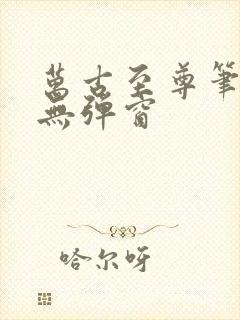 萬古至尊筆
無彈窗
哈尔呀